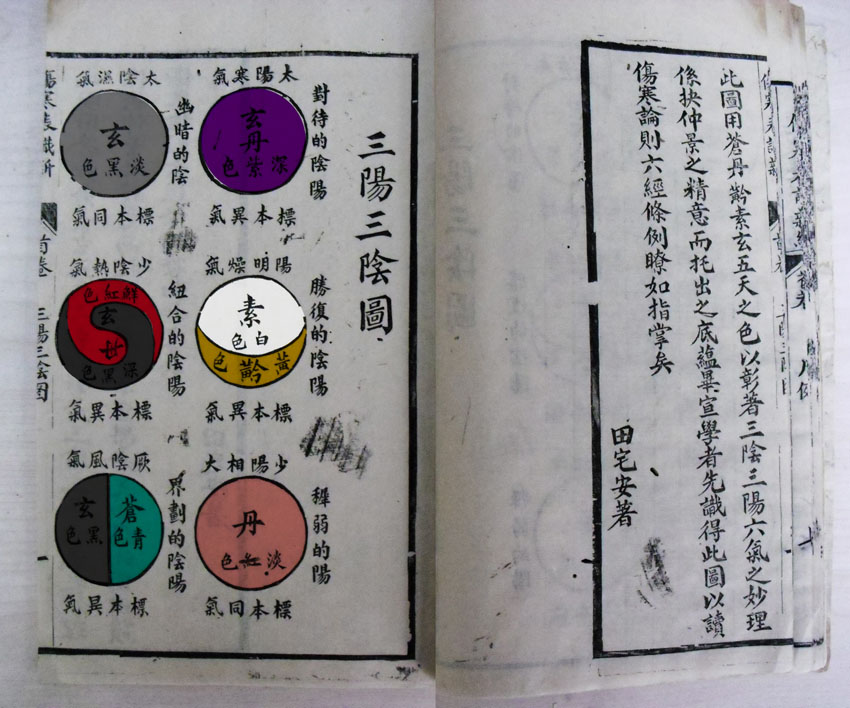 此圖用蒼丹黅素玄五天之色以彰著三陰三陽六氣之妙理
係抉仲景之精意而托出之底蘊畢宣學者先識得此圖以讀
傷寒論則六經條例瞭如指掌矣
田宅安著
三陽三陰圖
對待的陰陽
太陽寒氣
玄丹
深紫色
標本異氣
勝復的陰陽
陽明燥氣
素
白色
黅
黃色
標本異氣
稺弱的陽
少陽相大
丹
淡紅色
標本同氣
幽暗的陰
太陰濕氣
玄
淡黑色
標本同氣
紐合的陰陽
少陰熱氣
鮮紅色
玄
深黑色
標本異氣
界劃的陰陽
厥陰風氣
蒼
青色
玄
黑色
標本異氣
首卷
三陽三陰图